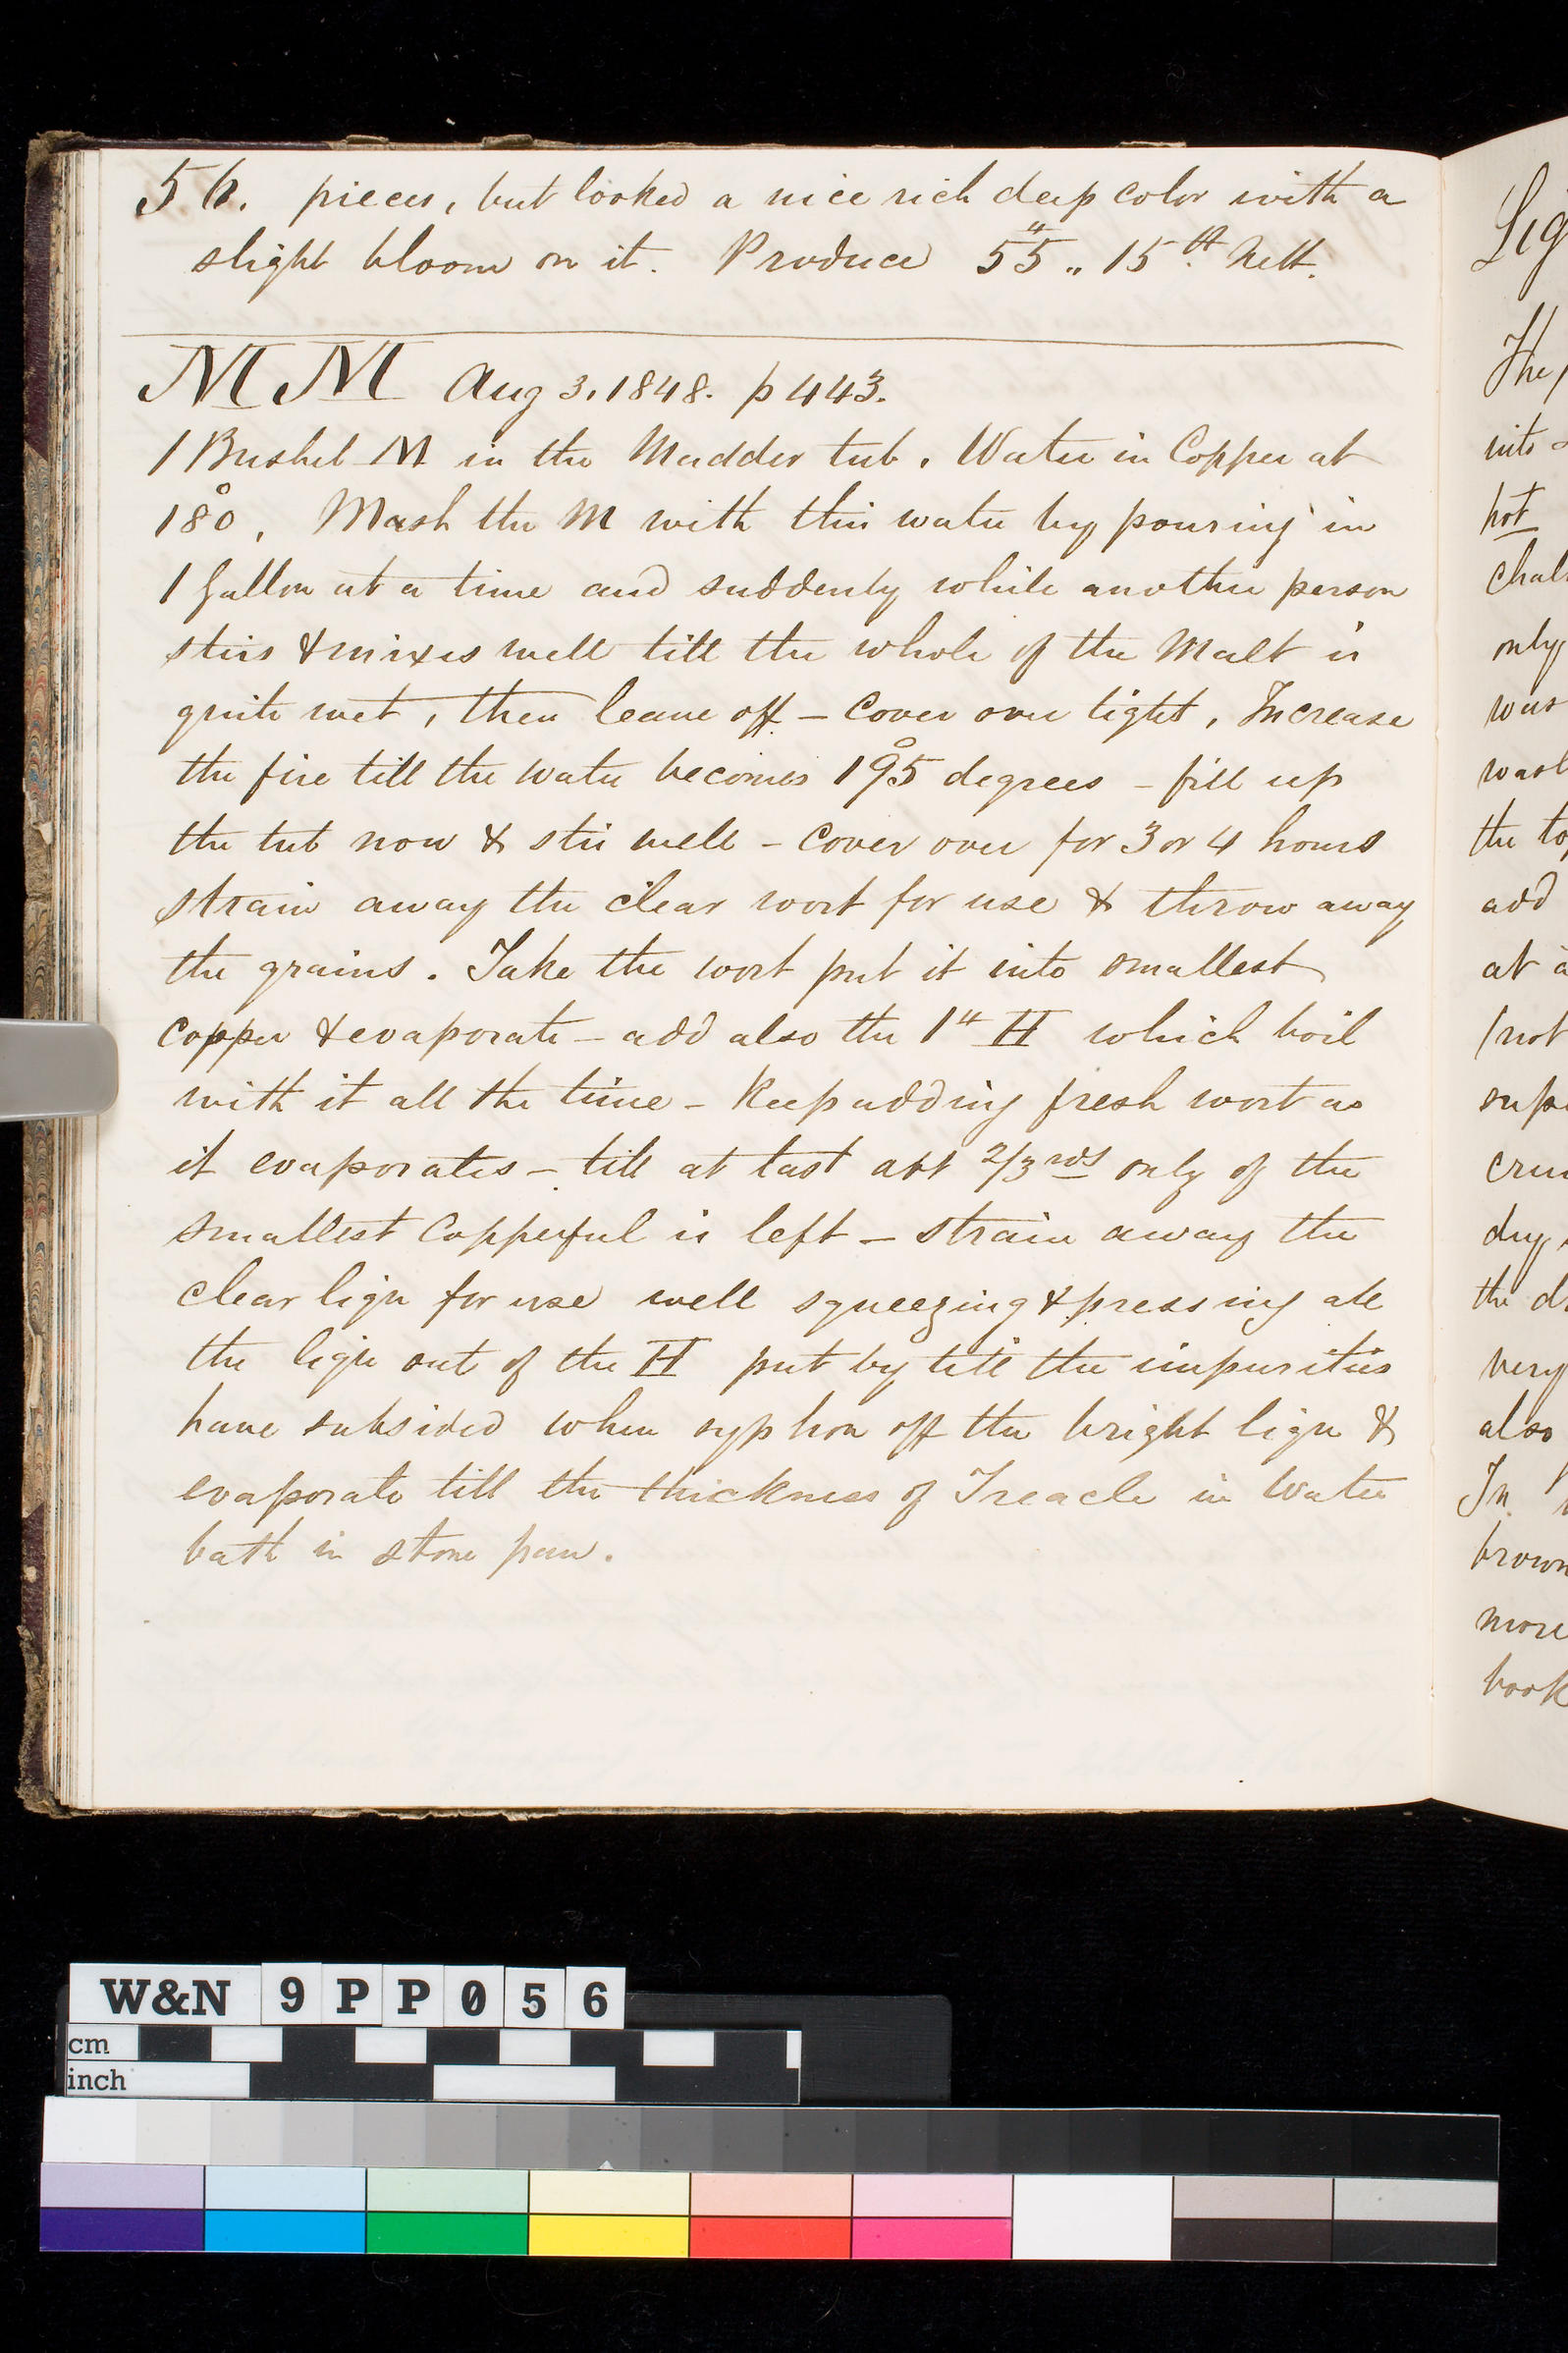 56. pieces, but looked a nice rich deep color with a
slight bloom on it. Produce 55 " 15 Nett.
MM Aug 3. 1848. p 443.
1 Bushel M in the Madder tub. Water in Copper at
180°, Mash the M with this water by pouring in
1 Gallon at a time and suddenly while another person
stirs & mixes well till the whole of the Malt is
quite wet, then leave off - Cover over tight, Increase
the fire till the water becomes 195° degrees - fill up
the tub now & stir well - Cover over for 3 or 4 hours
strain away the clear wort for use & throw away
the grains. Take the wort put it into smallest
Copper & evaporate - add also the 1 lb H which boil
with it all the time - Keep adding fresh wort as
it evaporates - till at last abt 2/3rds only of the
smallest Copperful is left - strain away the
clear liqr for use well squeezing & pressing all
the liqr out of the H put by till the impurities
have subsided when syphon off the bright liqr &
evaporate till the thickness of Treacle in Water
bath in stone pan.
Lig
The
into
hot
chal
only
was
wash
the to
add
at a
(not
supe
cru
dry
the d
very
also
In
brown
more
book
W&N 9PP056
cm
inch